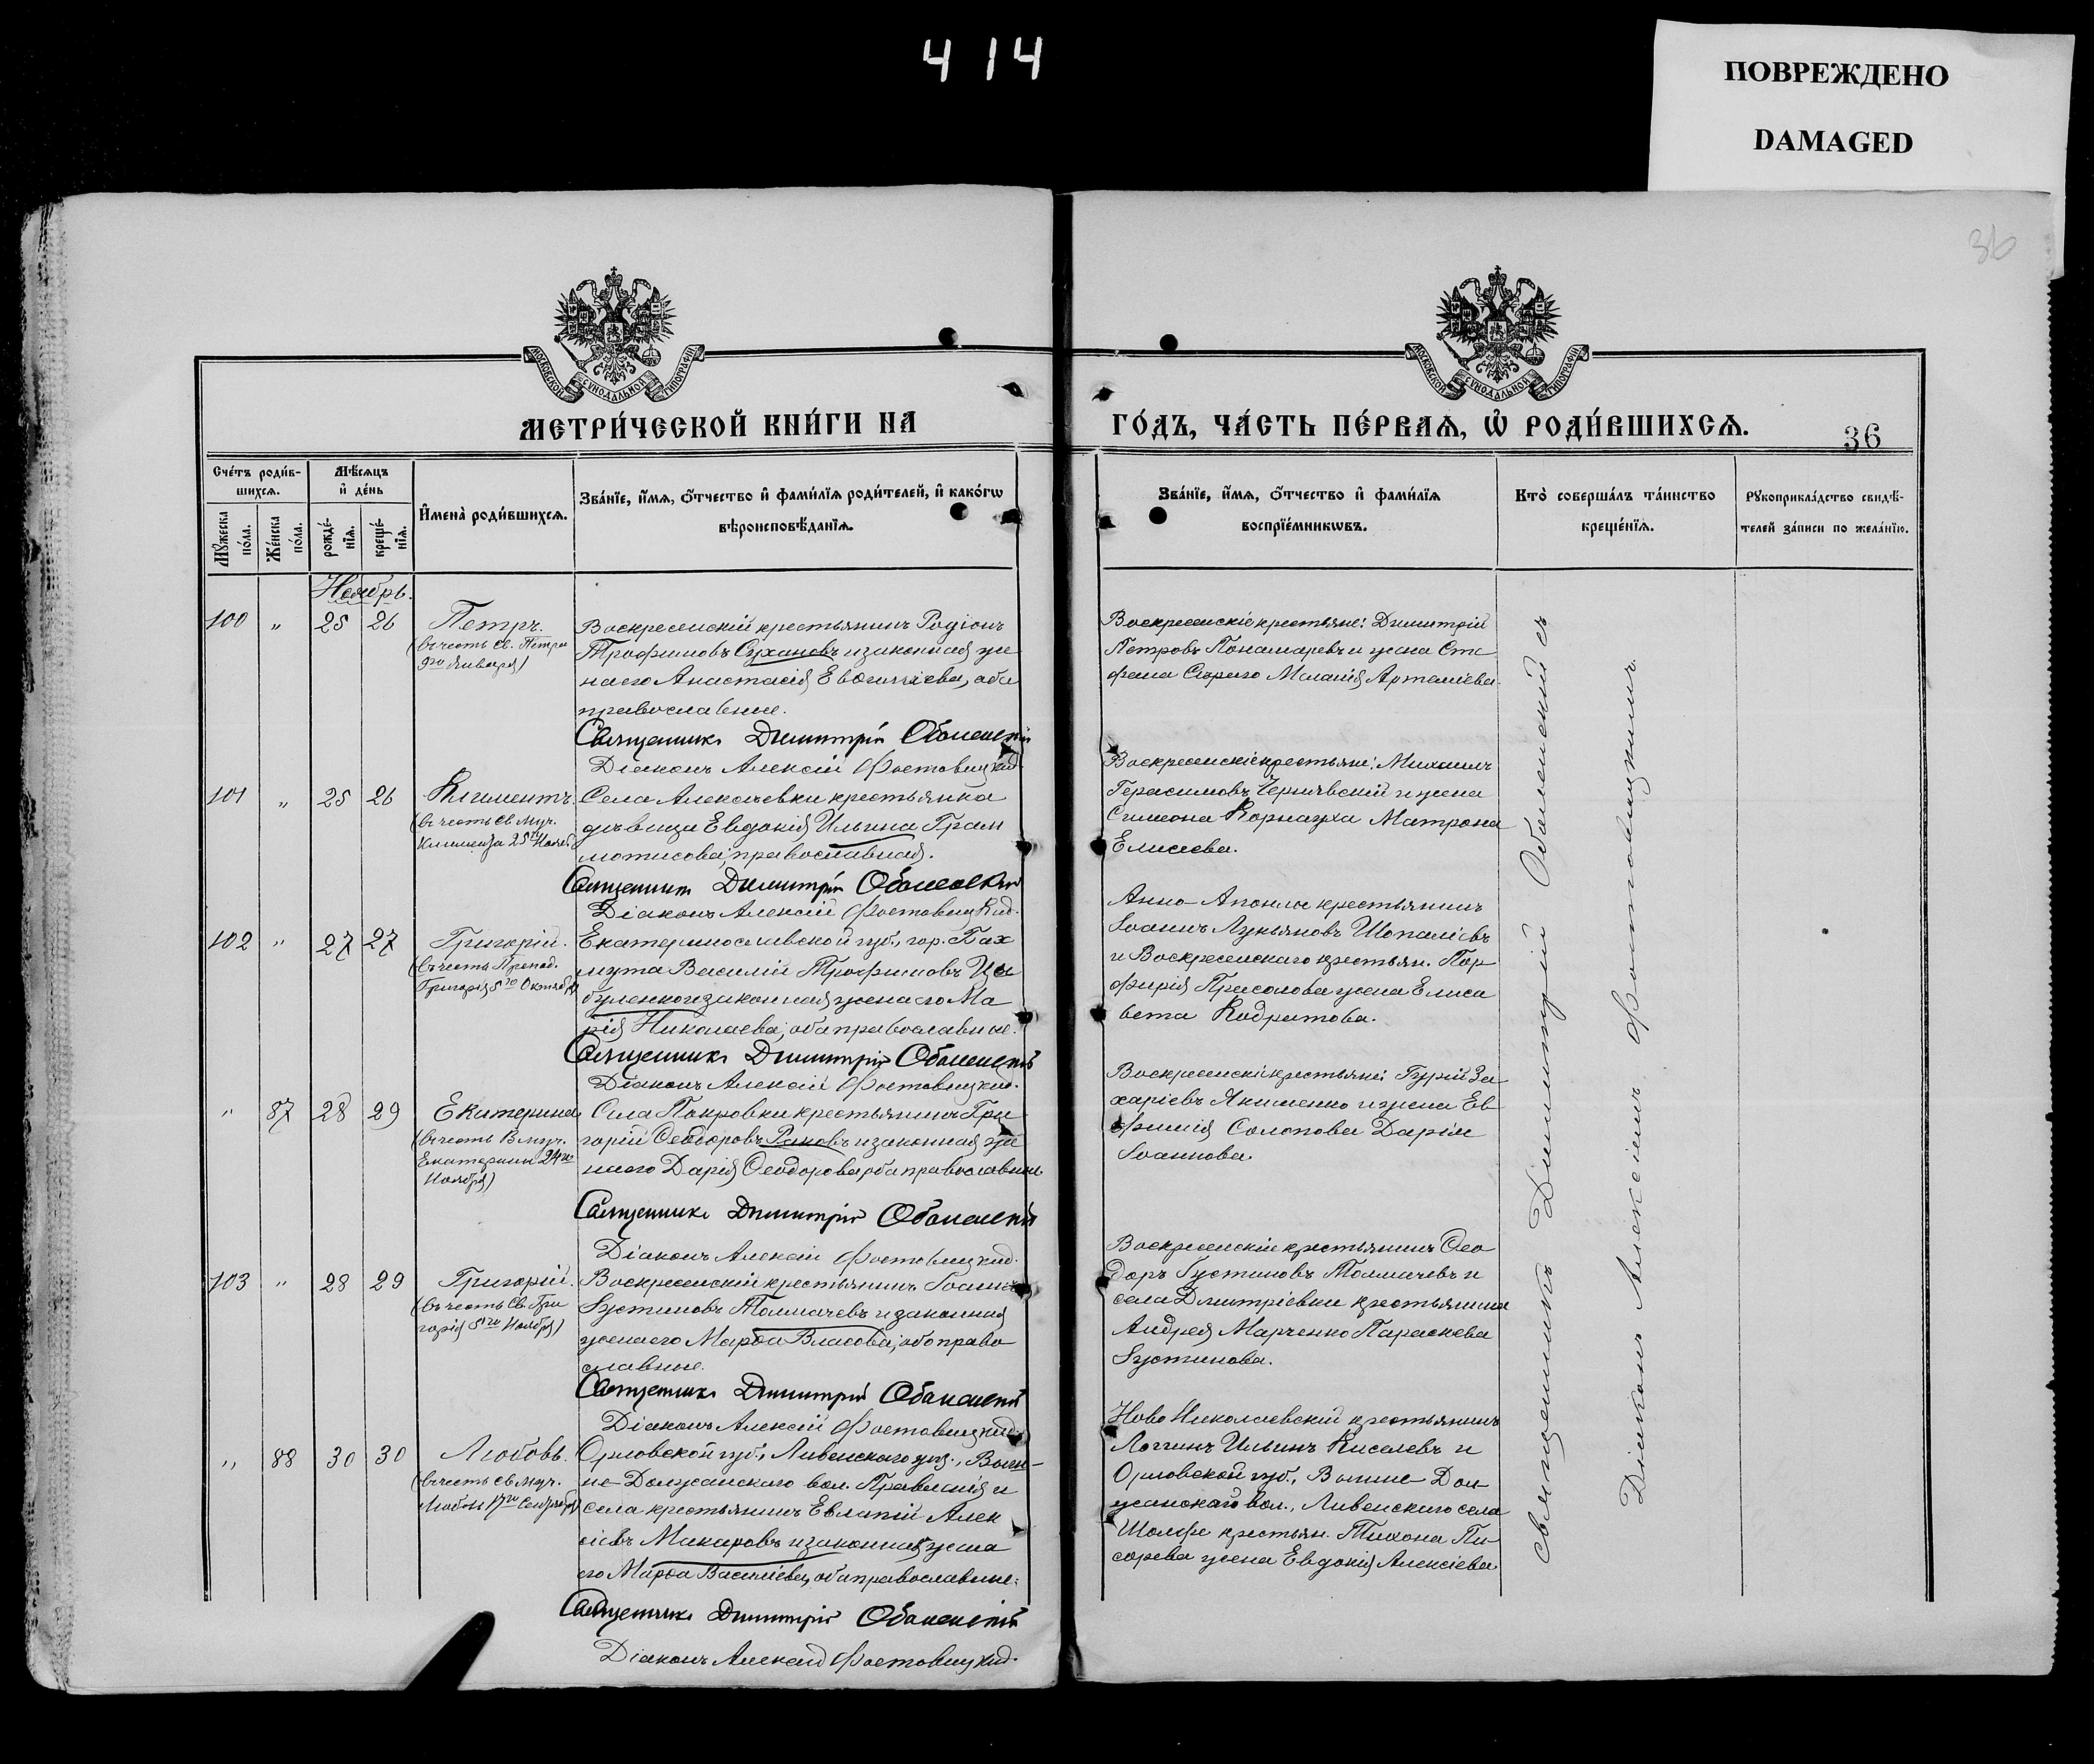 414
ПОВРЕЖДЕНО
DAMAGED
36
МОСКОВСКОЙ СѴНОДАЛЬНОЙ ТИПОГРАФІИ
МОСКОВСКОЙ СѴНОДАЛЬНОЙ ТИПОГРАФІИ
МЕТРИ́ЧЕСКОЙ КНИ́ГИ НА
ГО́ДЪ, ЧА́СТЬ ПЕ́РВАѦ, Ѡ҆ РОДИ́ВШИХСѦ.
36
Сче́тъ роди́в-
шихсѧ.
Мѣ́сѧцъ
и҆ де́нь
Мꙋ́жеска по́ла.
Же́нска по́ла.
рожде́-нїѧ.
креще́-нїѧ.
И҆мена̀ роди́вшихсѧ.
Зва́нїе, и҆́мѧ, ѻ҆́тчество и҆ фами́лїѧ роди́телей, и҆ како́гѡ
вѣроисповѣ́данїѧ.
Зва́нїе, и҆́мѧ, ѻ҆́тчество и҆ фами́лїѧ
воспрїе́мникѡвъ.
Кто̀ соверша́лъ та́инство
креще́нїѧ.
Рꙋкоприкла́дство свидѣ́-
телей за́писи по жела́нїю.
Ноябрь.
100 " 25 26 Петръ.
(въ честь Св. Петра
9го Января)
Воскресенскій крестьянинъ Родіонъ
Трофимовъ Сухановъ и законная же
на его Анастасія, оба
православные.
Священникъ Димитрій Оболенскій
Діаконъ Алексій Фостовицкій
Воскресенскіе крестьяне: Димитрій
Петровъ Пономаревъ и жена Сте
фана Сѣраго Меланія Артеміева.
101 " 25 26 Климентъ.
(въ честь Св. Муч.
Климента 25го Нояб.)
Села Алексѣевки крестьянка
дѣвица Евдокія Ильина Грам
мотикова, православная.
Священникъ Димитрій Оболенскій
Діаконъ Алексій Фостовицкій.
Воскресенскіе крестьяне: Михаилъ
Герасимовъ Чернявскій и жена
Симеона Корнауха Матрона
Елисеева.
102 " 27 27 Григорій.
(въ честь Препод.
Григорія 5го Октября)
Екатеринославской губ., гор. Бах
мута Василій Трофимовъ Цы
буленко и законная жена его Ма
рія Николаева, оба православные.
Священникъ Димитрій Оболенскій
Діаконъ Алексій Фостовицкій.
крестьянинъ
Іоаннъ Лукьяновъ
и Воскресенскаго крестьян. Пор
фирія Присолова жена Елиса
вета Кодратова.
" 87 28 29 Екатерина
(въ честь В. муч.
Екатерины 24го
Ноября)
Села Покровки крестьянинъ Гри
горій Ѳеодоровъ Раковъ и законная же
на его Дарія Ѳеодорова, оба православные
Священникъ Димитрій Оболенскій
Діаконъ Алексій Фостовицкій.
Воскресенскіе крестьяне: Гурій За
харіевъ Якименко и жена Ев
фимія Солопова Дарія
Іоаннова.
103 " 28 29 Григорій.
(въ честь Св. Гри
горія 5го Ноября)
Воскресенскій крестьянинъ Іоаннъ
Іустиновъ Толмачевъ и законная
жена его Марѳа Власова, оба право
славные.
Священникъ Димитрій Оболенскій
Діаконъ Алексій Фостовицкій.
Воскресенскій крестьянинъ Ѳео
доръ Іустиновъ Толмачевъ и
села Дмитріевки крестьянина
Андрея Марченко Параскева
Іустинова.
" 88 30 30 Любовь.
(въ честь Св. муч.
Любви 17го Сентября)
Орловской губ., Ливенскаго уѣз.,
Должанскаго вол.
села крестьянинъ Евлапій Алек
сіевъ Макаровъ и законная жена
его Марѳа Василіева, оба православные.
Священникъ Димитрій Оболенскій
Діаконъ Алексій Фостовицкій.
Ново Николаевскій крестьянинъ
Логгинъ Ильинъ Киселевъ и
Орловской губ., Дол
жанскаго вол., Ливенскаго села
крестьян. Тихона Пи
сарева жена Евдокія Алексіева.
Священникъ Димитрій Оболенскій съ
Діакономъ Алексіемъ Фостовицкимъ.